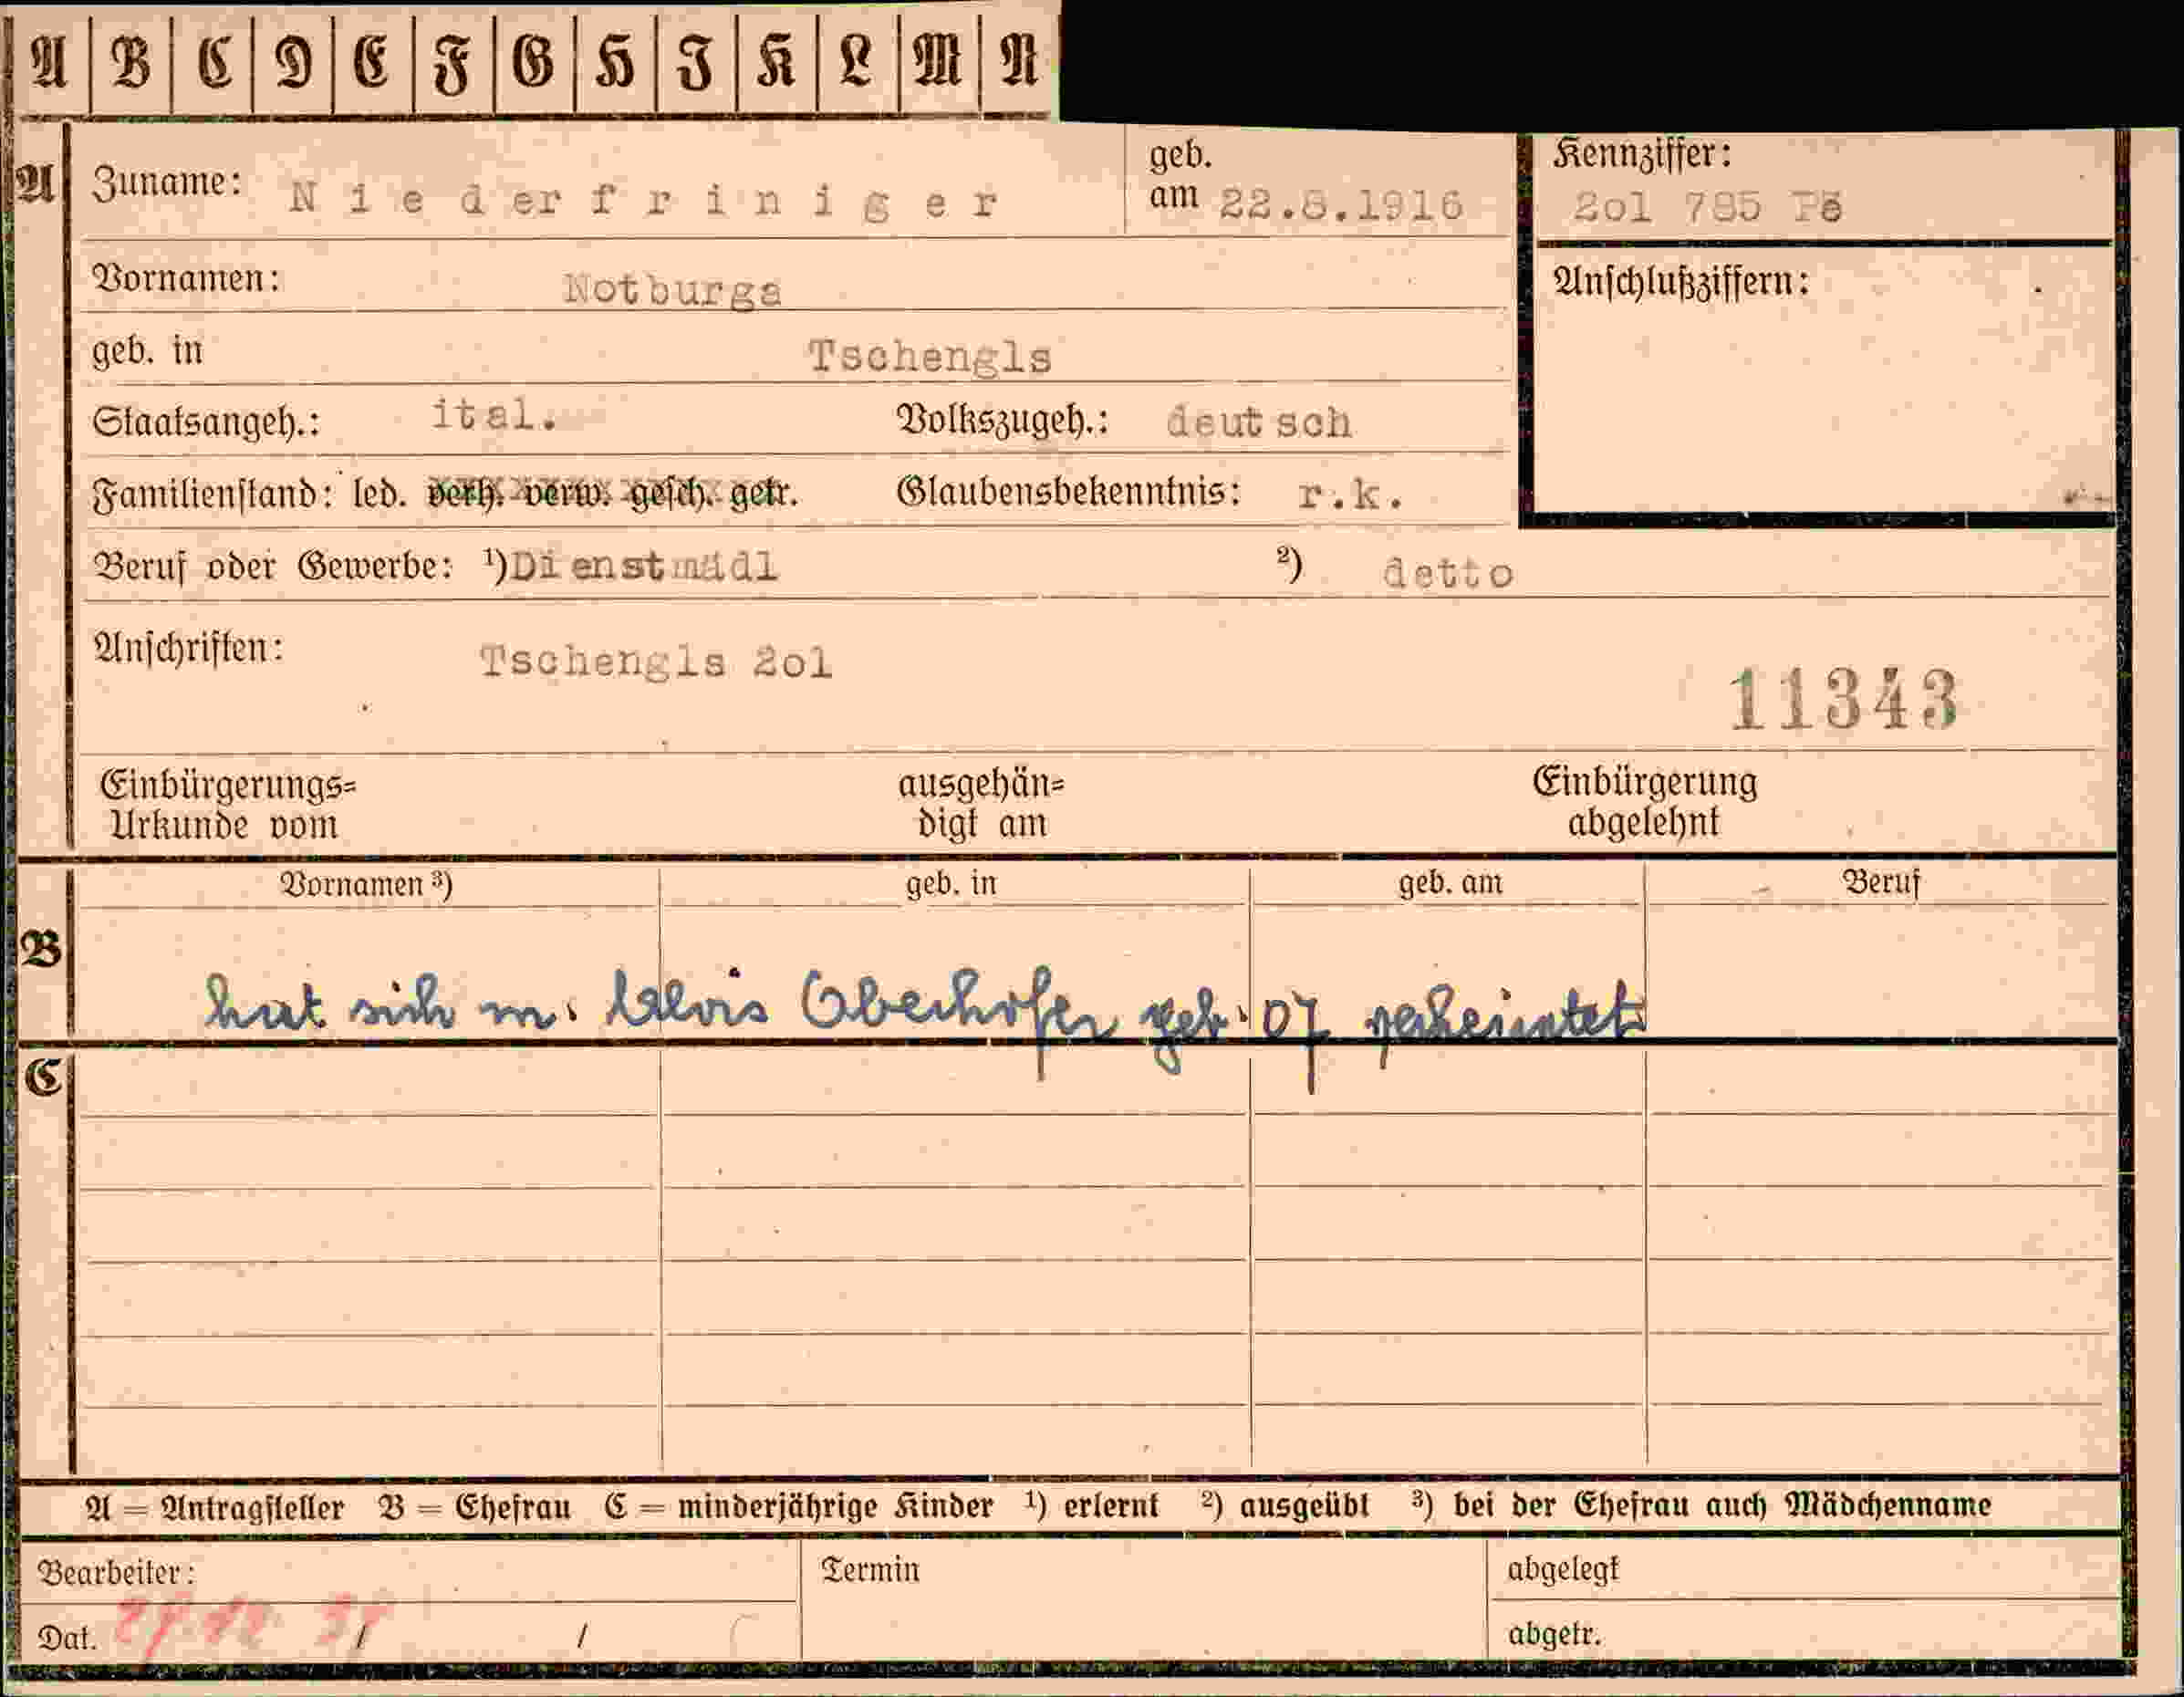 A B C D E F G H I K L M N
A Zuname: Niederfriniger geb. am 22.8.1916 Kennziffer: 2ol 785 Pe
Vornamen: Notburga Anschlußziffern:
geb. in Tschengls
Staatsangeh.: ital. Volkszugeh.: deutsch
Familienstand: led. verh. verw. gesch. getr. Glaubensbekenntnis: r.k.
Beruf oder Gewerbe: ¹) Dienstmädl ²) detto
Anschriften: Tschengls 2ol
11343
Einbürgerungs= ausgehän= Einbürgerung
Urkunde vom digt am abgelehnt
Vornamen ³) geb. in geb. am Beruf
B
hat sich m. Alois Oberhofer geb. 07 verheiratet
C
A = Antragsteller B = Ehefrau C = minderjährige Kinder ¹) erlernt ²) ausgeübt ³) bei der Ehefrau auch Mädchenname
Bearbeiter: Termin abgelegt
Dat. / / abgetr.